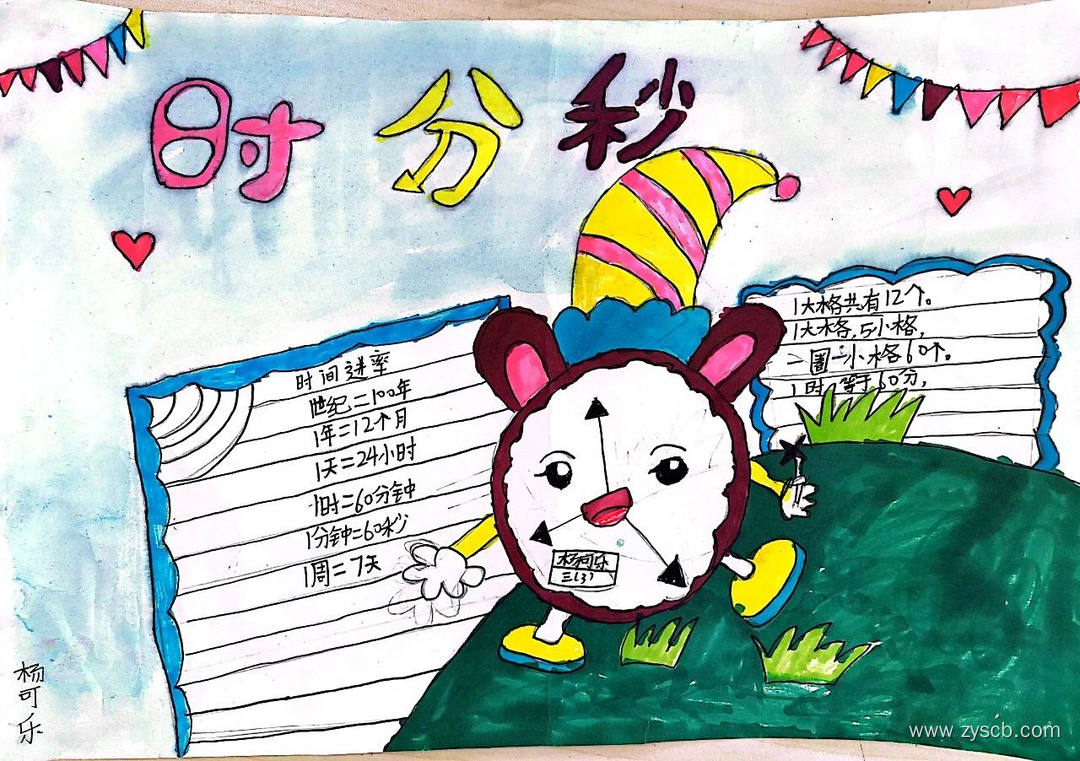 时分秒
时间进率
1世纪=100年
1年=12个月
1天=24小时
1时=60分钟
1分钟=60秒
1周=7天
1大格共有12个。
1大格,5小格,
一圈=小格60个。
1时等于60分,
杨可乐
三(3)
杨可乐
www.zyscb.com